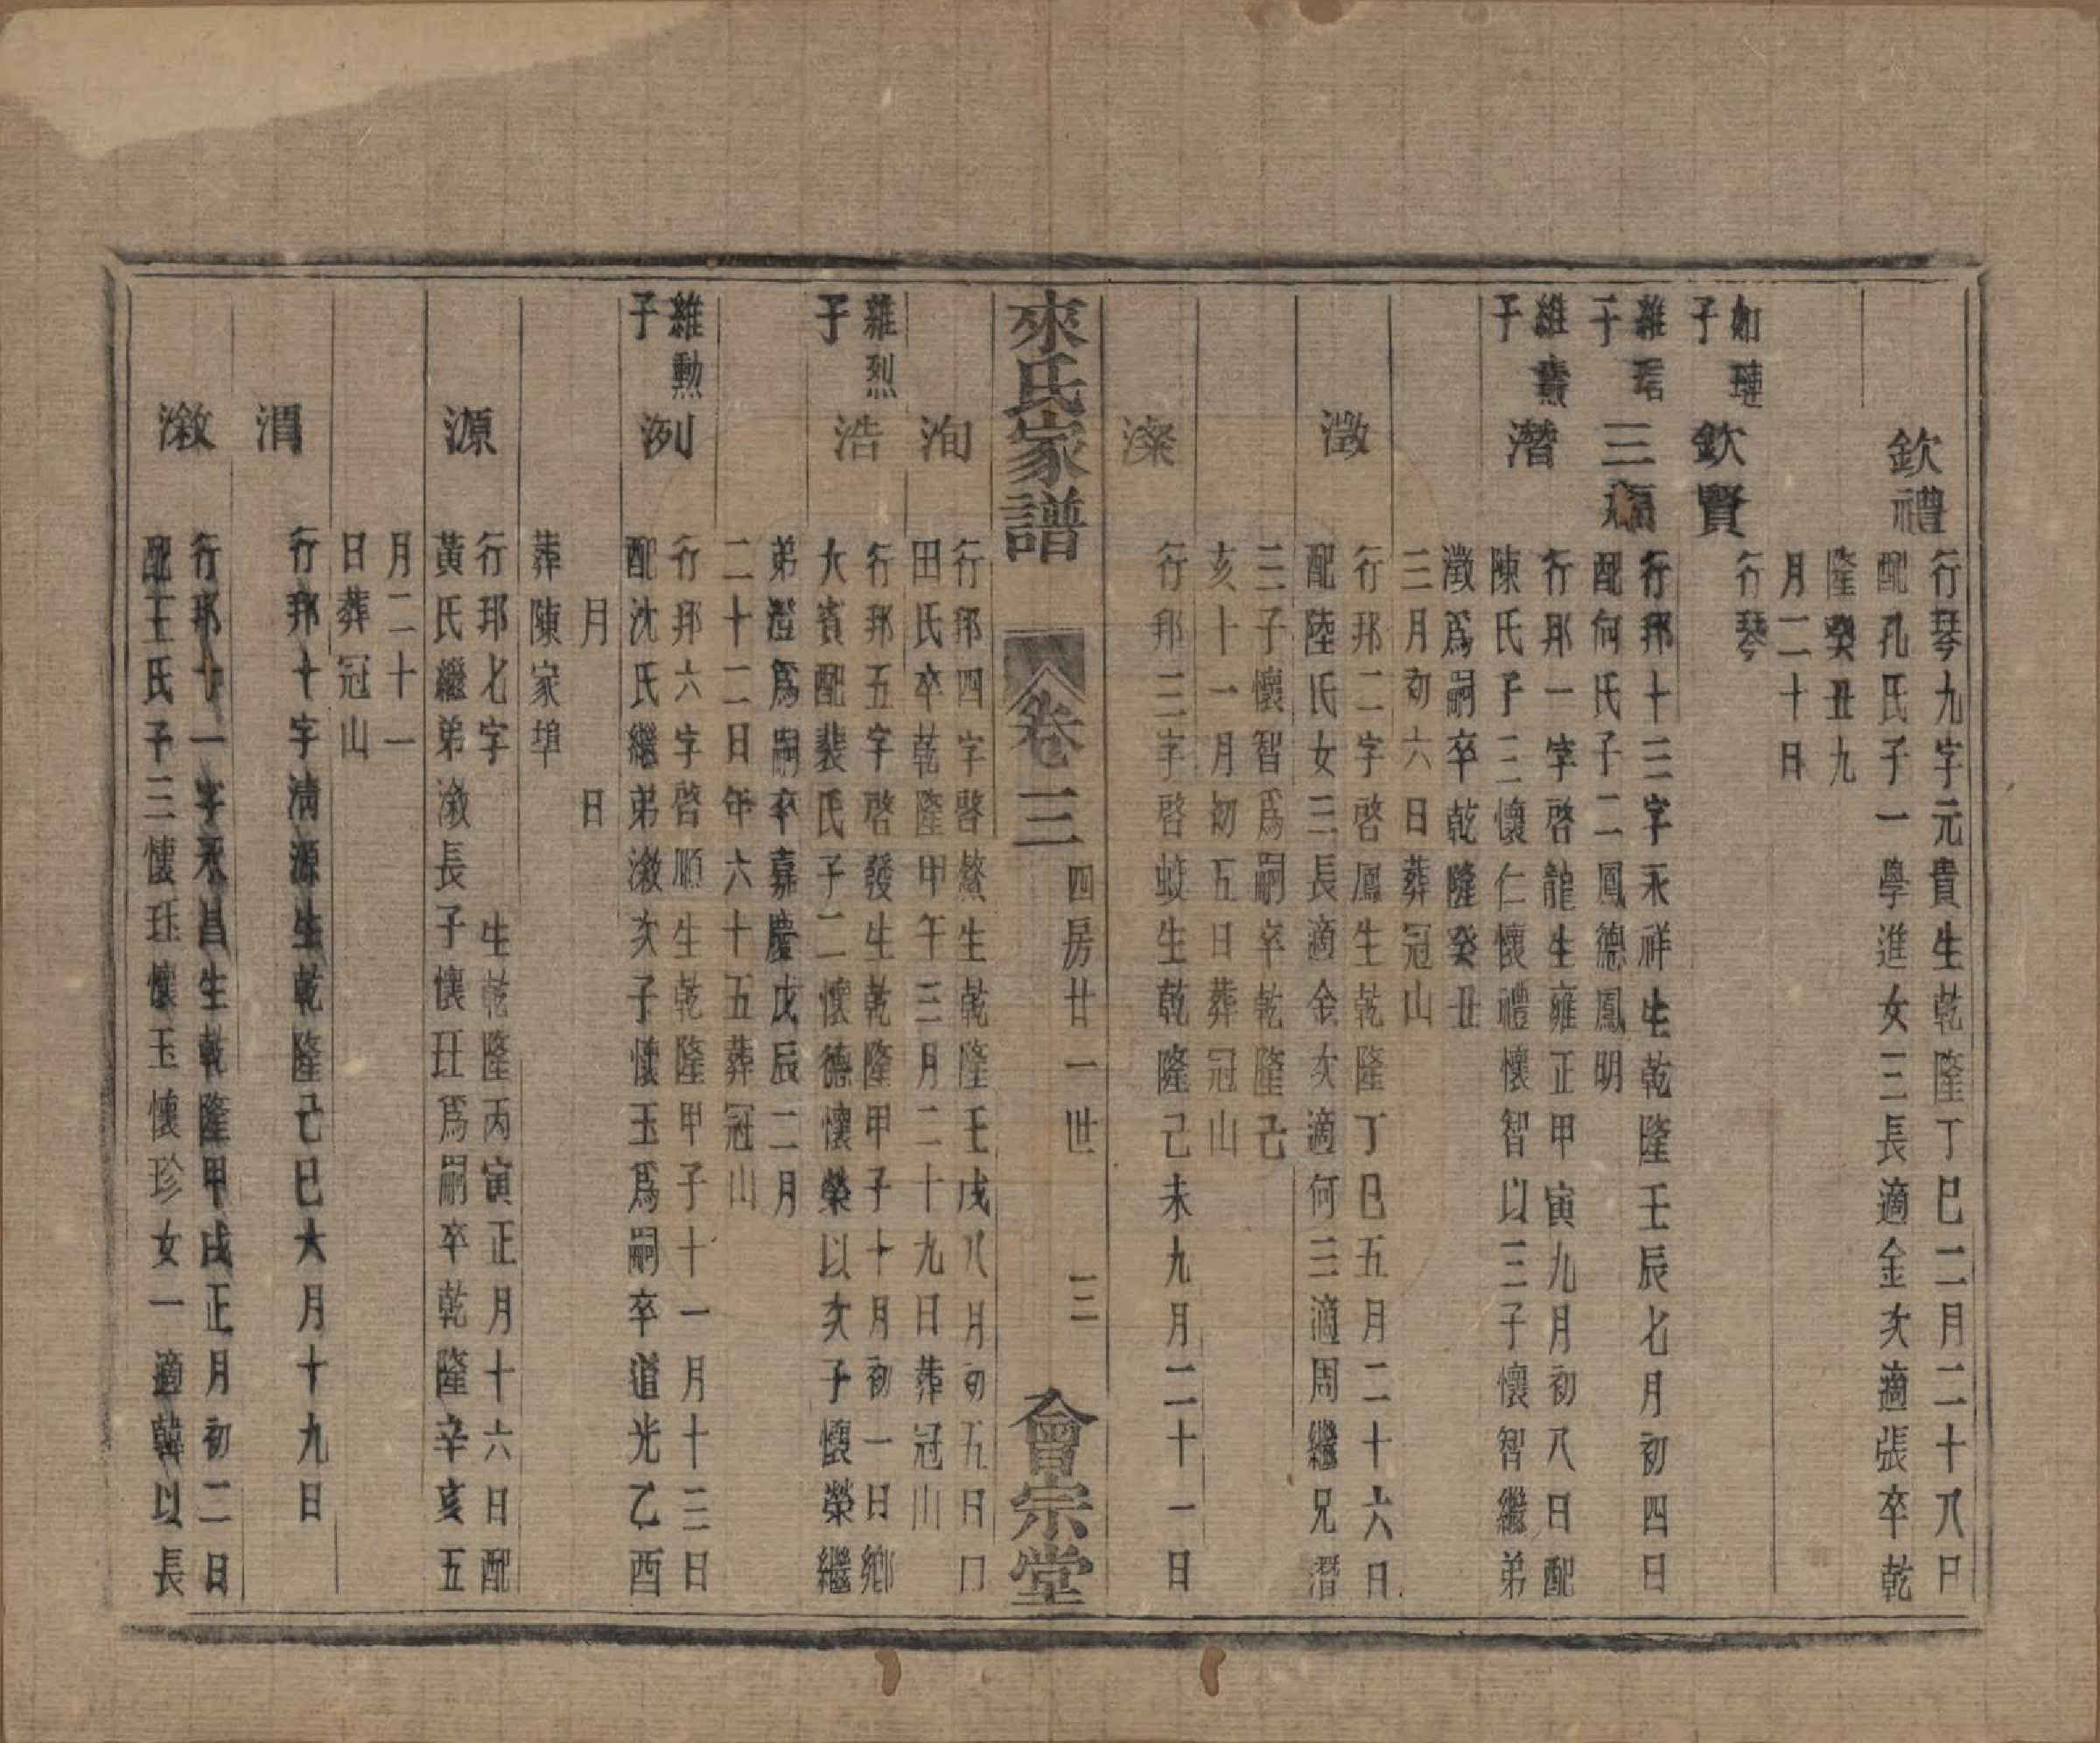 欽禮
行琴九字元貴生乾隆丁巳二月二十八日
配孔氏子一學進女三長適金次適張卒乾
隆癸丑九
月二十日
如璉
子
欽賢
行琴
維珺
子
三福
行邦十三字永祥生乾隆壬辰七月初四日
配何氏子二鳳德鳳明
維燾
子
潛
行邦一字啓龍生雍正甲寅九月初八日配
陳氏子三懷仁懷禮懷智以三子懷智繼弟
澂爲嗣卒乾隆癸丑
三月初六日葬冠山
澂
行邦二字啓鳳生乾隆丁巳五月二十六日
配陸氏女三長適金次適何三適周繼兄潛
三子懷智爲嗣卒乾隆己
亥十一月初五日葬冠山
濼
行邦三字啓蛟生乾隆己未九月二十一日
來氏家譜
卷三
四房廿一世
三
會宗堂
洵
行邦四字啓鰲生乾隆壬戌八月初五日
田氏卒乾隆甲午三月二十九日葬冠山
維烈
子
浩
行邦五字啓發生乾隆甲子十月初一日鄉
大賓配裴氏子二懷德懷榮以次子懷榮繼
弟澄爲嗣卒嘉慶戊辰二月
二十二日年六十五葬冠山
維勳
子
洌
行邦六字啓順生乾隆甲子十一月十三日
配沈氏繼弟潋次子懷玉爲嗣卒道光乙酉
月 日
葬陳家埠
源
行邦七字 生乾隆丙寅正月十六日配
黃氏繼弟潋長子懷玨爲嗣卒乾隆辛亥五
月二十一
日葬冠山
渭
行邦十字清源生乾隆己巳六月十九日
潋
行邦十一字永昌生乾隆甲戌正月初二日
配王氏子三懷玨懷玉懷珍女一適韓以長